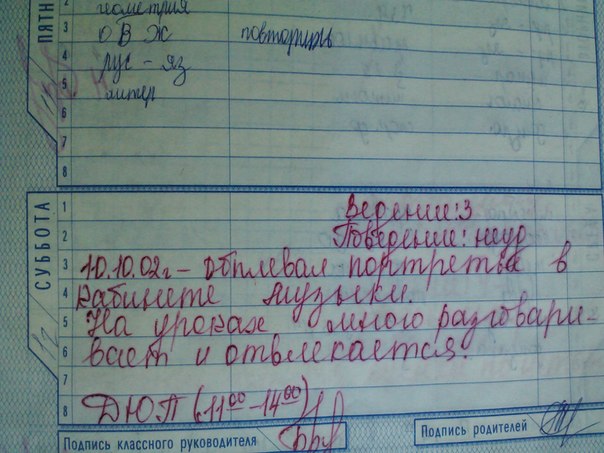 ПЯТН
2
3
4
5
6
7
8
геометрия
ОБЖ повторить
рус - яз
литер
СУББОТА
1
2
3
4
5
6
7
8
Ведение: 3
Поведение: неуд
10.10.02г – обплевал портреты в
кабинете музыки.
На уроках много разговари-
вает и отвлекается.
ДЮП (11 00 – 14 00)
Подпись классного руководителя
Подпись родителей